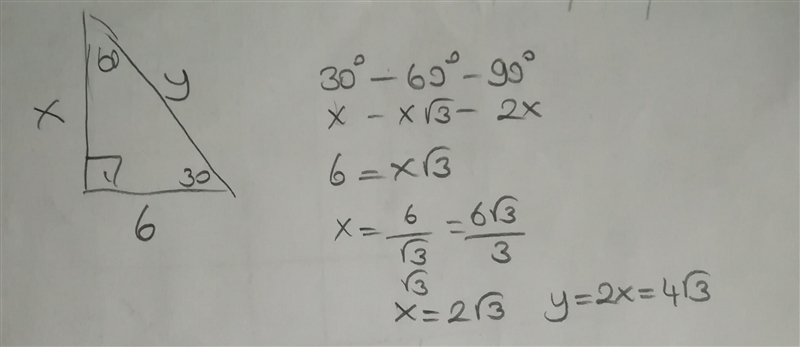 60
y
x
30
6
30° - 60° - 90°
x - x√3 - 2x
6 = x√3
x = 6/√3 = 6√3/3
√3
x = 2√3 y = 2x = 4√3